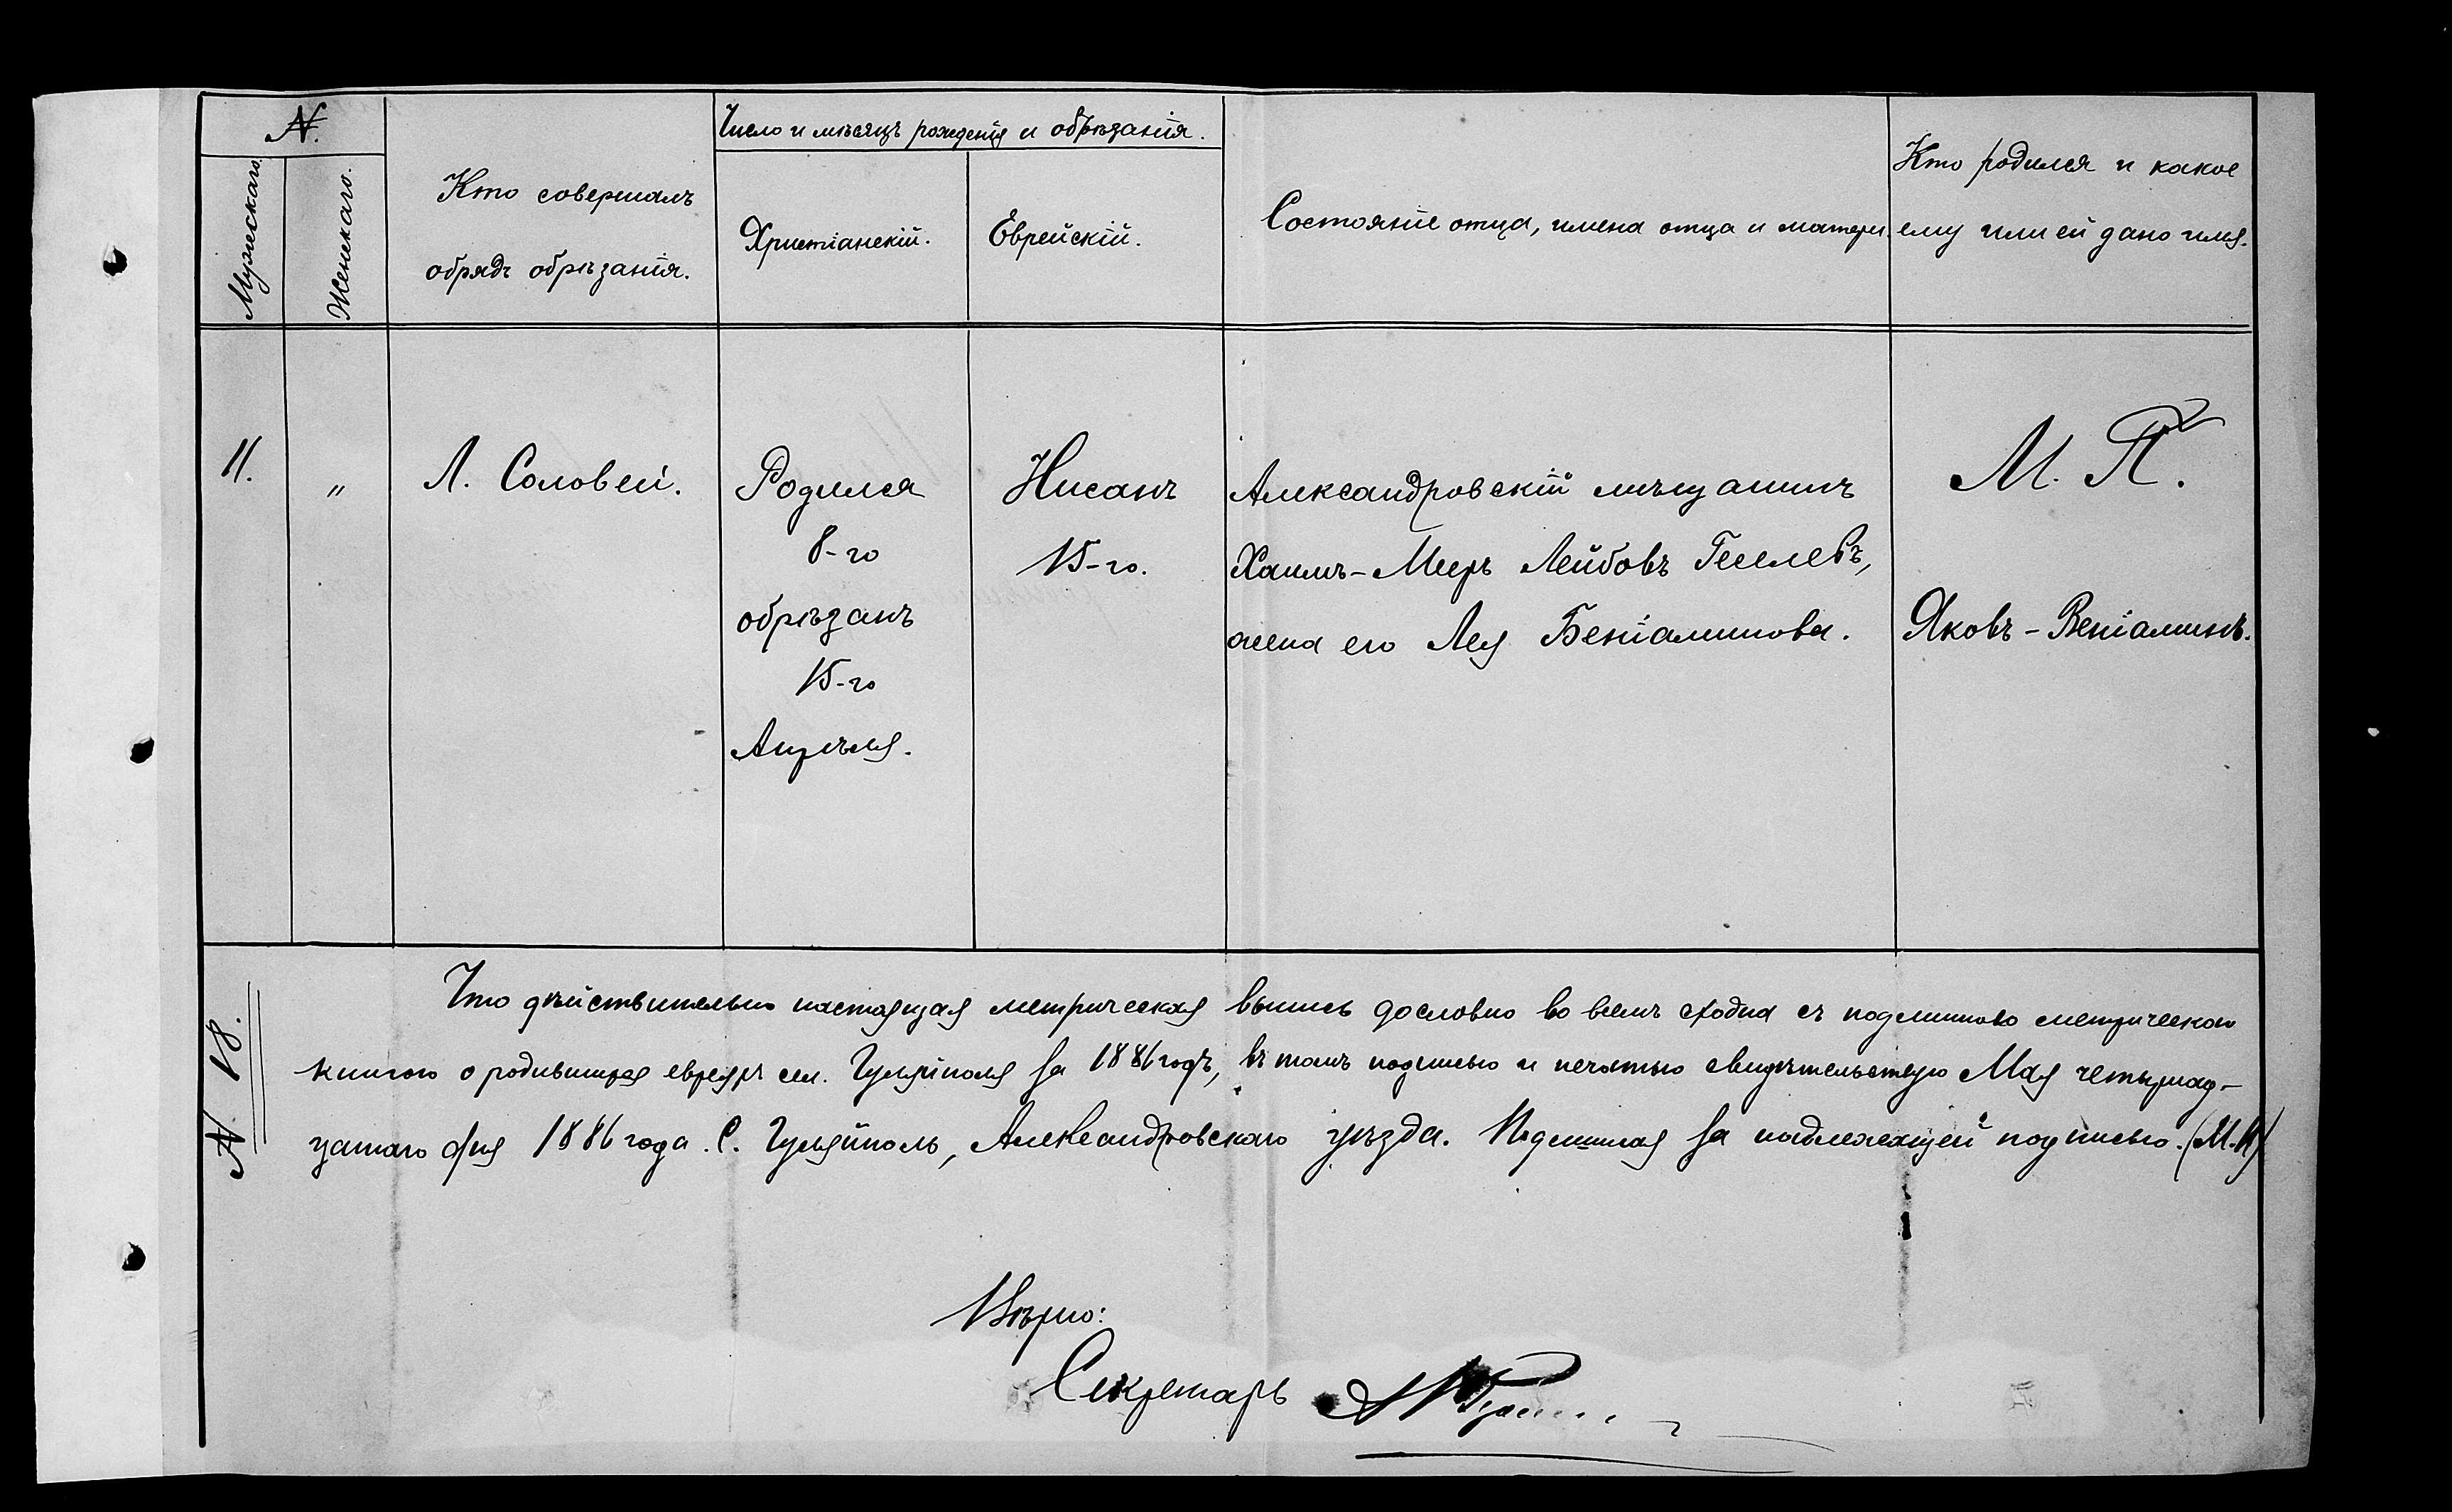 N.
Мужескаго.
Женскаго.
Кто совершалъ
обрядъ обрѣзанія.
Число и мѣсяцъ рожденія и обрѣзанія.
Христіанскій.
Еврейскій.
Состояніе отца, имена отца и матери.
Кто родился и какое
ему или ей дано имя.
11.
"
Л. Соловей.
Родился
8-го
обрѣзанъ
15-го
Апрѣля.
Нисанъ
15-го.
Александровскій мѣщанинъ
Хаимъ-Мееръ Лейбовъ Геселевъ,
жена его Лея Беніаминова.
М. П.
Яковъ-Веніаминъ.
N. 18.
Что дѣйствительно настоящая метрическая выпись дословно во всемъ сходна съ подлинною метрическою
книгою о родившихся евреяхъ сел. Гуляйполя за 1886 годъ, въ томъ подписью и печатью свидѣтельствую Мая четырнад-
цатаго дня 1886 года. С. Гуляйполь, Александровскаго уѣзда. Подлинная за надлежащей подписью. (М.П)
Вѣрно:
Секретарь